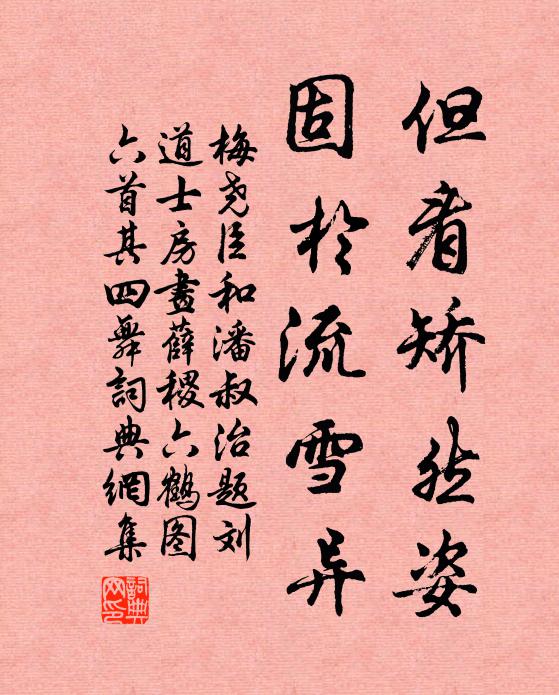 但看矫然姿
固於流雪异
梅尧臣和潘叔治题刘
道士房畫薛稷六鹤图
六首其四舞詞典網集
詞典網印